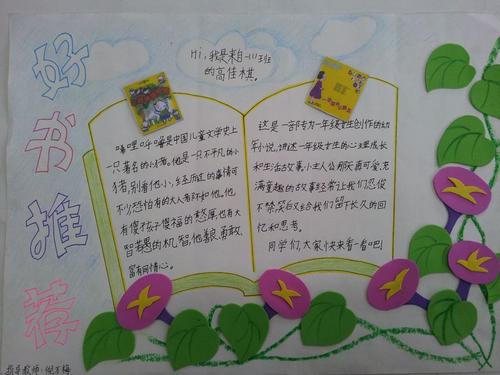 好书推荐
Hi,我是来自一(1)班
的高佳棋。
嘻哩呼噜是中国儿童文学史上
一只著名的小猪。他是一只不平凡的小
猪,别看他小,经历的事情可
不少恐怕有的大人有所不如他。他
有傻孩子傻福的憨厚也有大
智若愚的机智,他善良勇敢,
富有同情心。
这是一部专为一年级女生创作的幼
年小说,讲述一年级女生的心理成长
和生活故事,小主人公
充
满童趣的故事经常让我们忍俊
不禁笑
又给我们留下长久的回
忆和思考。
同学们,大家快来看一看吧!
指导教师: